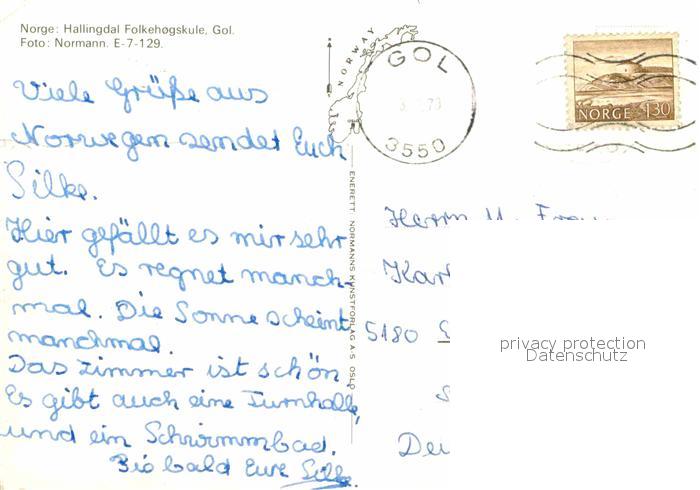 Norge: Hallingdal Folkehøgskule, Gol.
Foto: Normann. E-7-129.
Viele Grüße aus
Norwegen sendet Euch
Silke.
Hier gefällt es mir sehr
gut. Es regnet manch-
mal. Die Sonne scheint
manchmal.
Das Zimmer ist schön.
Es gibt auch eine Turnhalle,
und ein Schwimmbad.
Bis bald Eure Silke.
NORWAY
GOL
3550
NORGE 130
ENERETT: NORMANNS KUNSTFORLAG A-S OSLO
Herrn u.
5180
privacy protection
Datenschutz